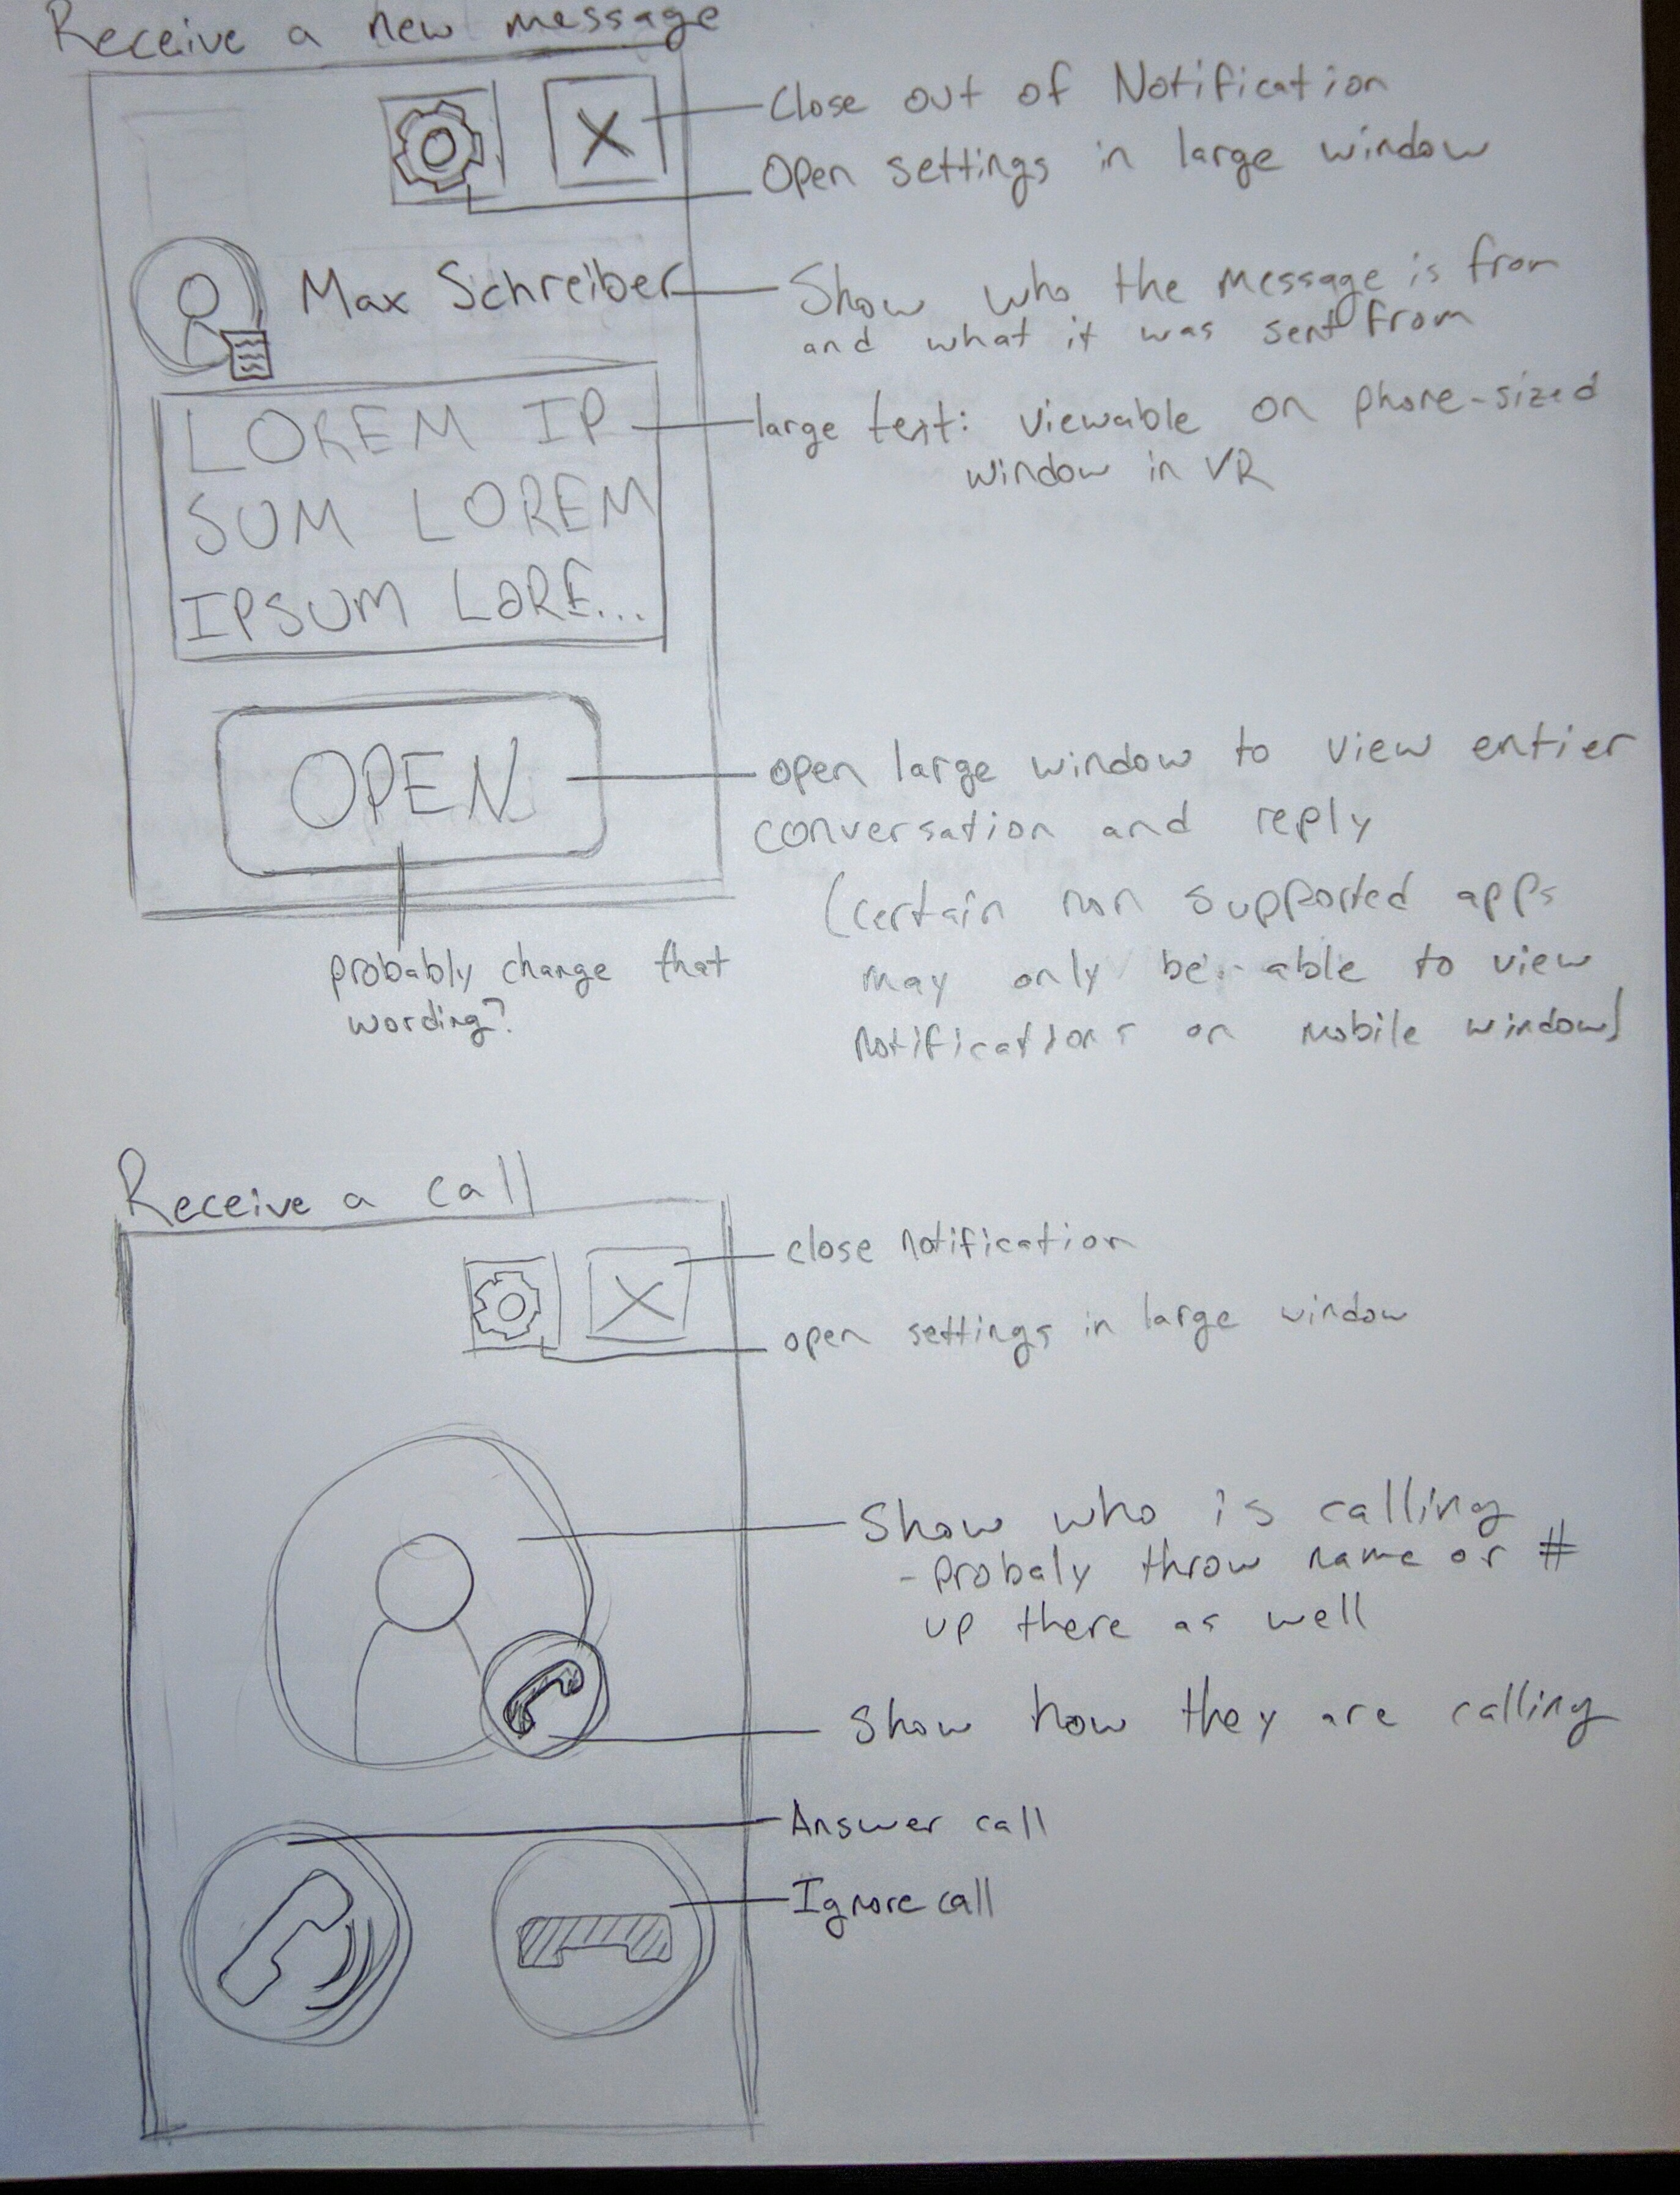 Receive a new message
X
Close out of Notification
Open settings in large window
Max Schreiber
Show who the message is from
and what it was sent from
LOREM IP
SUM LOREM
IPSUM LORE...
large text: viewable on phone-sized
window in VR
OPEN
open large window to view entier
conversation and reply
(certain non supported apps
may only be able to view
notifications on mobile window)
probably change that
wording?
Receive a call
X
close notification
open settings in large window
Show who is calling
- probaly throw name or #
up there as well
Show how they are calling
Answer call
Ignore call